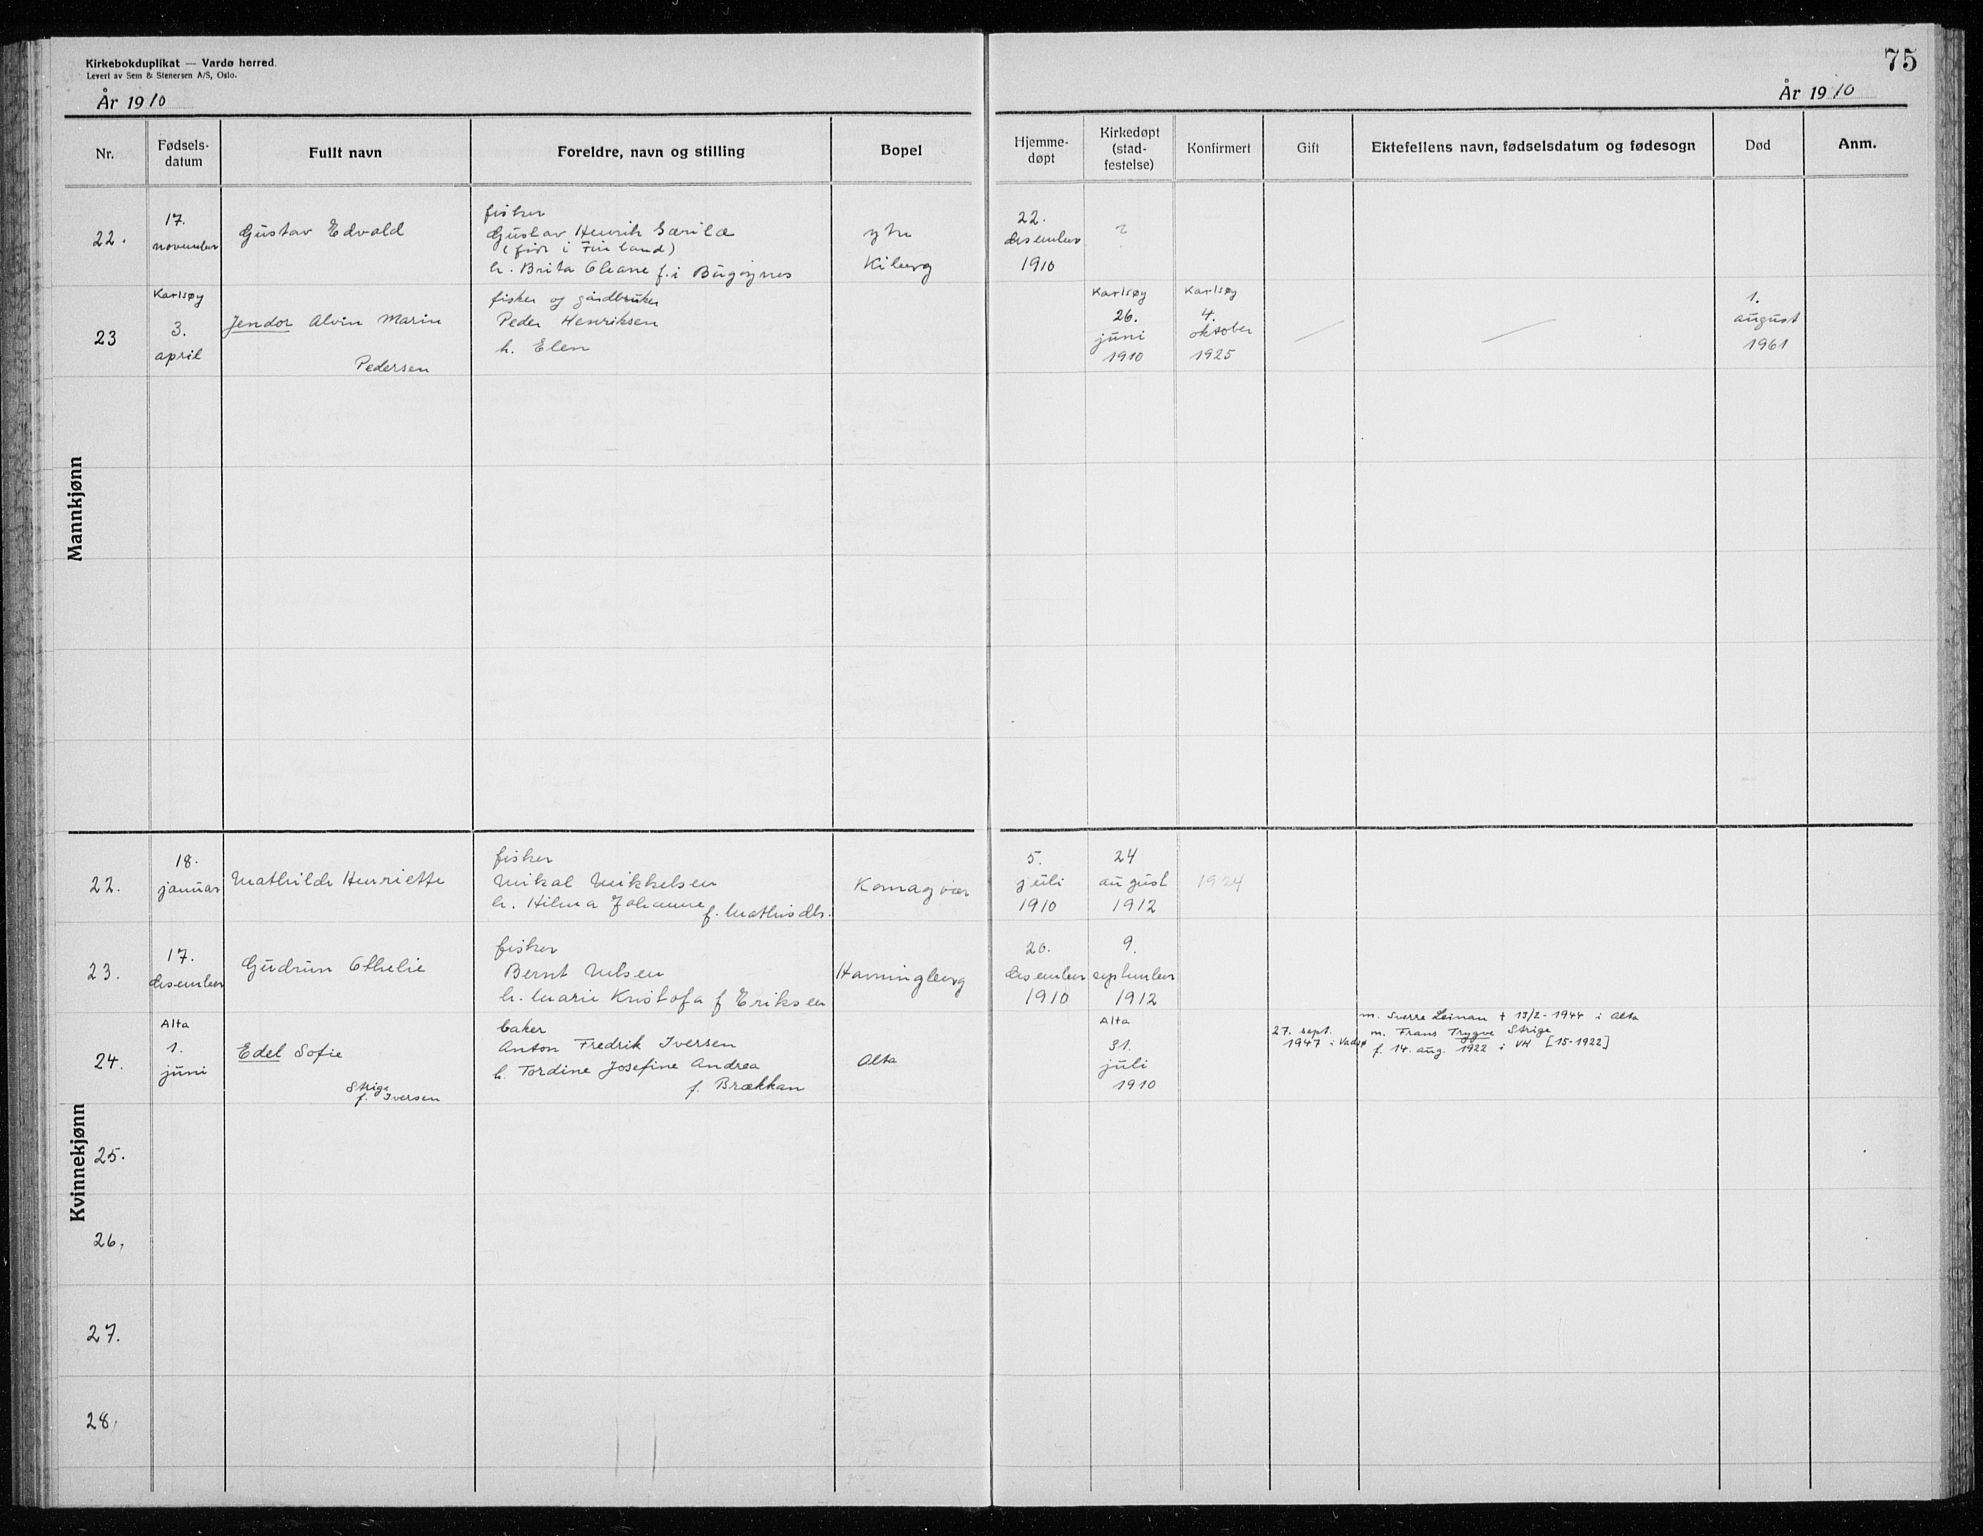 Kirkebokduplikat — Vardø herred.
Levert av Sem & Stenersen A/S, Oslo.
År 1910
75
År 1910
Nr.
Fødsels-
datum
Fullt navn
Foreldre, navn og stilling
Bopel
Hjemme-
døpt
Kirkedøpt
(stad-
festelse)
Konfirmert
Gift
Ektefellens navn, fødselsdatum og fødesogn
Død
Anm.
Mannkjønn
22.
17.
november
Gustav Edvald
fisker
Gustav Henrik
(født i Finland)
h. Brita Oleane f. i Bugøynes
ytre
Kiberg
22.
desember
1910
?
23
Karlsøy
3.
april
Jendor Alvin Marin
Pedersen
fisker og gårdbruker
Peder Henriksen
h. Elen
Karlsøy
26.
juni
1910
Karlsøy
4.
oktober
1925
1.
august
1961
Kvinnekjønn
22.
18.
januar
Mathilde Henriette
fisker
Mikal Mikkelsen
h. Hilma Johanne
f. Mathisdtr.
Komagvær
5.
juli
1910
24
august
1912
1924
23.
17.
desember
Gudrun Othelie
fisker
Bernt Nilsen
h. Marie Kristofa f Eriksen
Havningberg
20.
desember
1910
9.
september
1912
24.
Alta
1.
juni
Edel Sofie
Strige
f. Iversen
baker
Anton Fredrik Iversen
h. Tordine Josefine Andrea
f. Brækkan
Alta
Alta
31.
juli
1910
27. sept.
1947 i Vadsø
m. Sverre Leinan † 13/2-1944 i Alta
m. Frans Trygve Strige
f. 14. aug. 1922 i VH [15-1922]
25.
26.
27.
28.